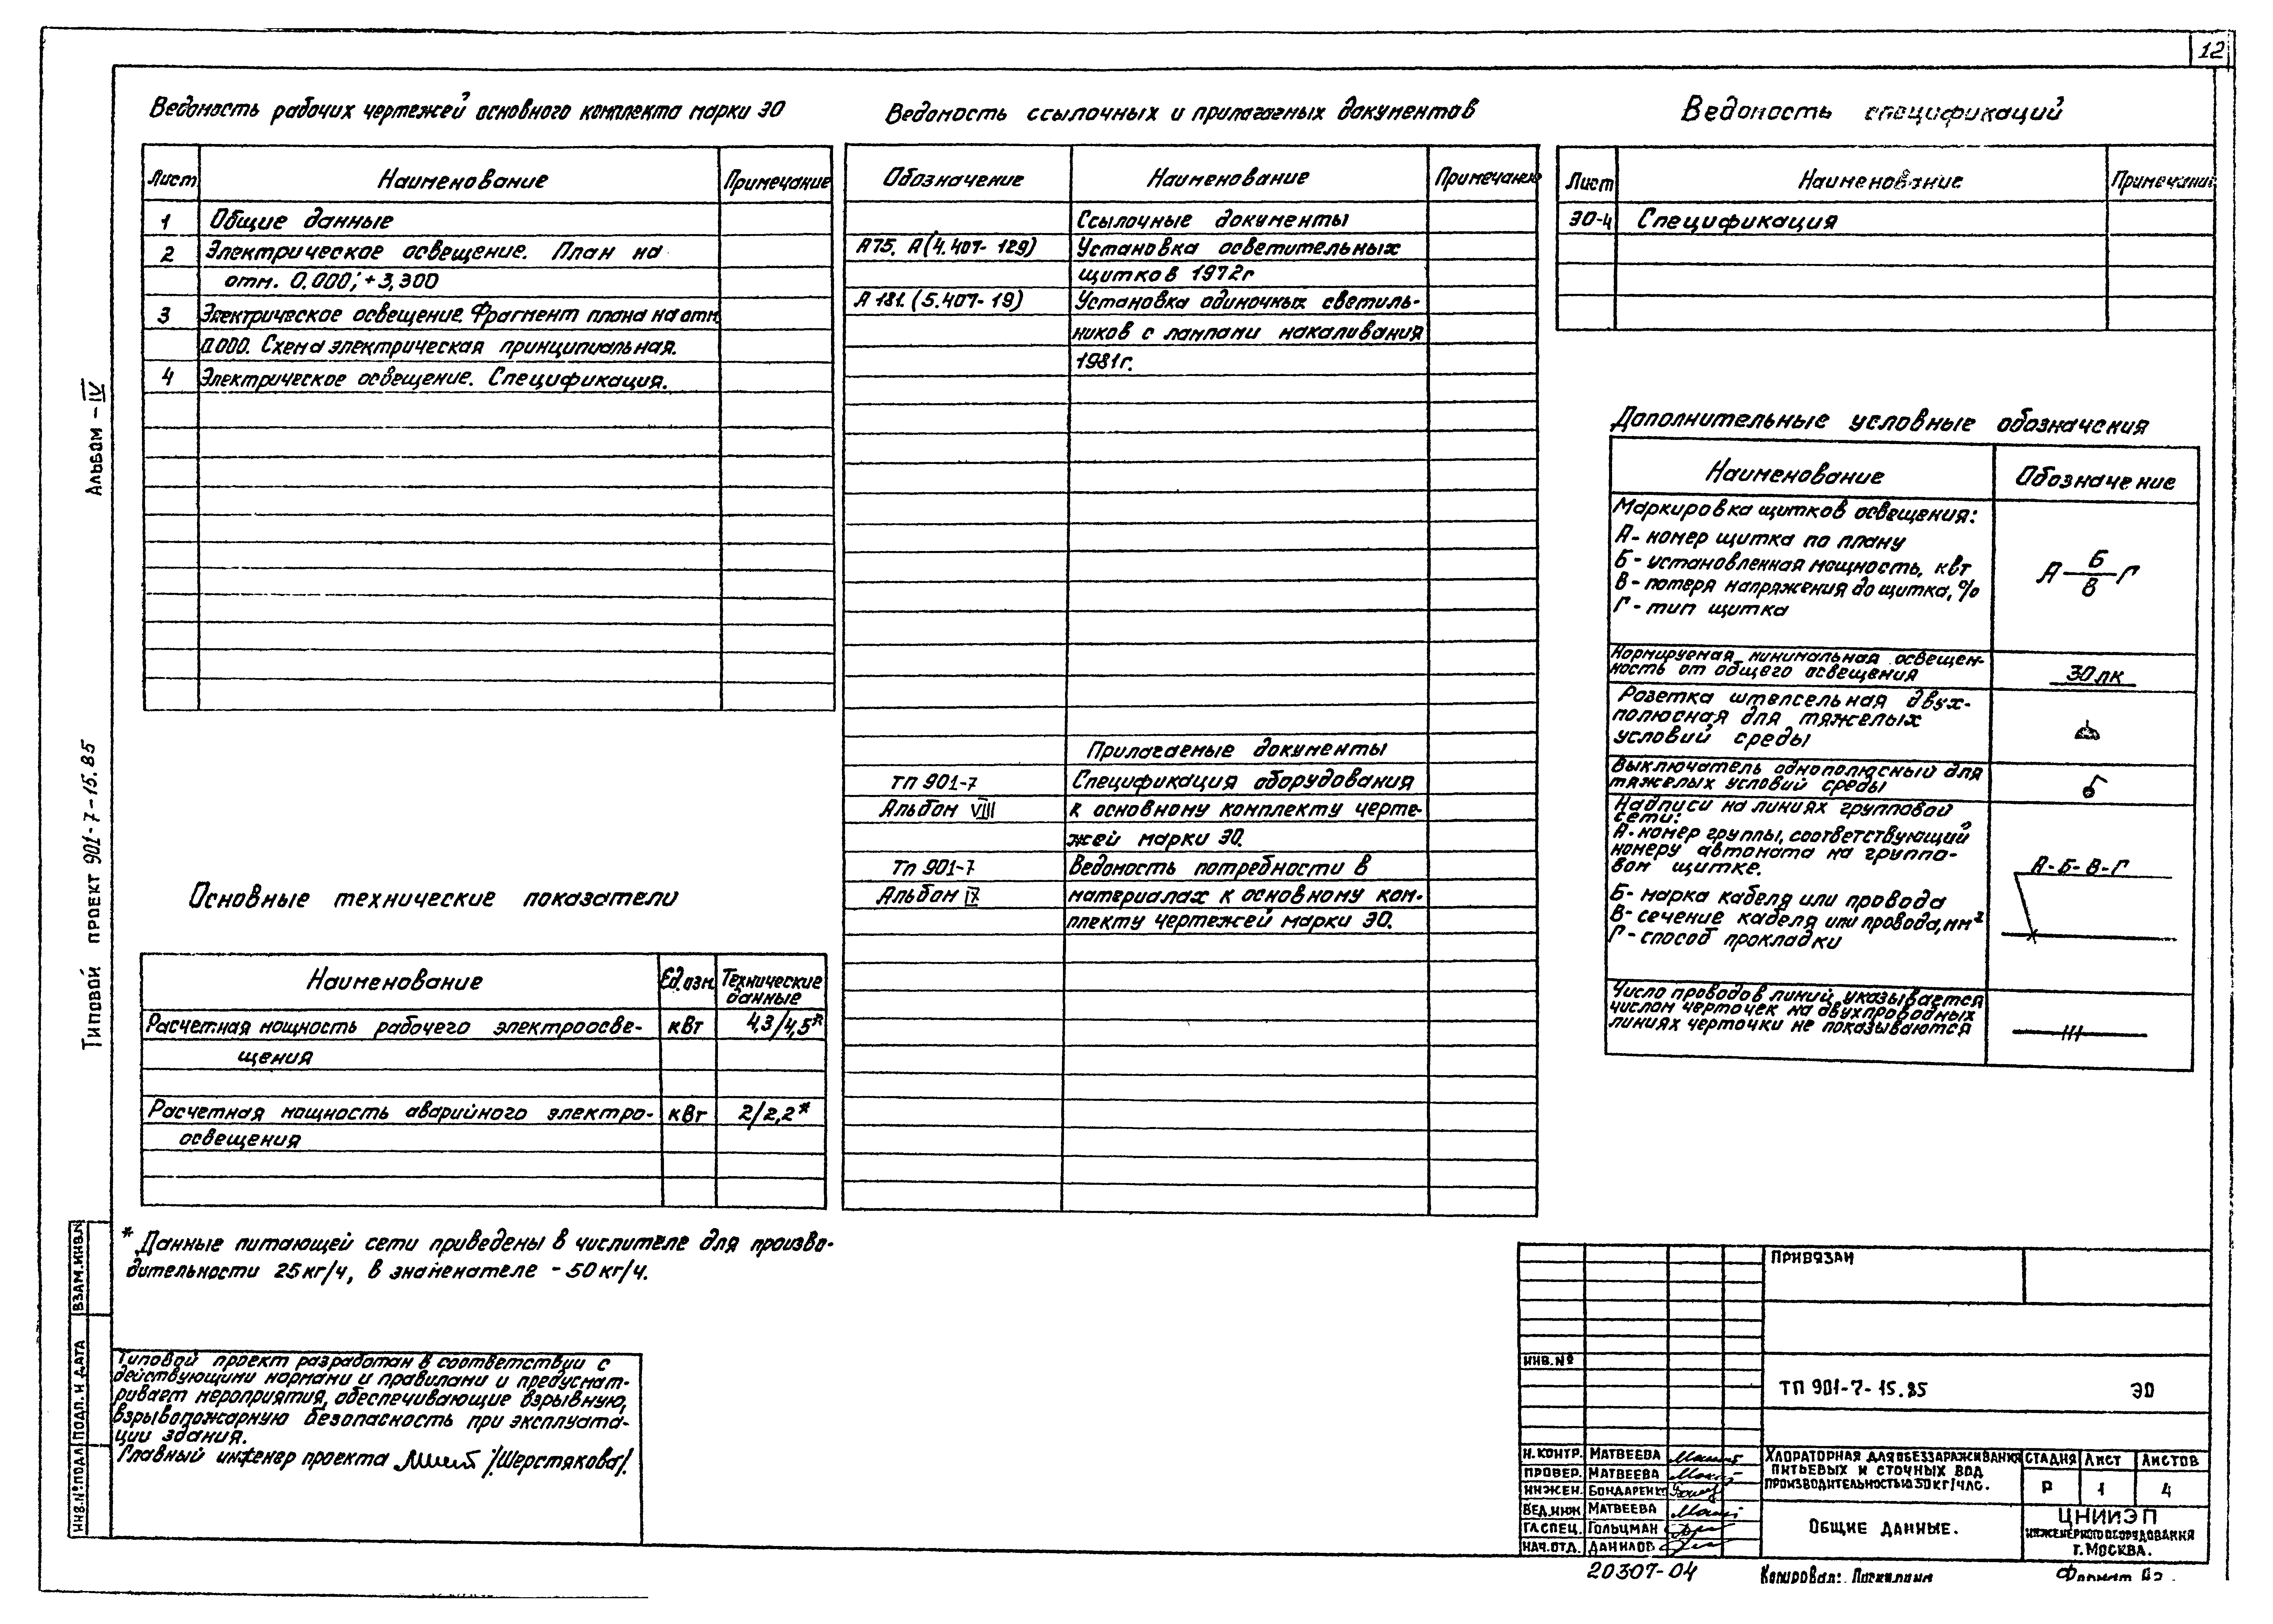 12
Ведомость рабочих чертежей основного комплекта марки ЭО
Лист Наименование Примечание
1 Общие данные
2 Электрическое освещение. План на
отм. 0.000; +3,300
3 Электрическое освещение. Фрагмент плана на отм.
0.000. Схема электрическая принципиальная.
4 Электрическое освещение. Спецификация.
Основные технические показатели
Наименование Ед.изм. Технические
данные
Расчетная мощность рабочего электроосве- кВт 4,3/4,5*
щения
Расчетная мощность аварийного электро- кВт 2/2,2*
освещения
* Данные питающей сети приведены в числителе для произво-
дительности 25кг/ч, в знаменателе - 50кг/ч.
Типовой проект разработан в соответствии с
действующими нормами и правилами и предусмат-
ривает мероприятия, обеспечивающие взрывную,
взрывопожарную безопасность при эксплуата-
ции здания.
Главный инженер проекта /Шерстякова/.
Ведомость ссылочных и прилагаемых документов
Обозначение Наименование Примечание
Ссылочные документы
А75. А(4.407-129) Установка осветительных
щитков 1972г
А 181. (5.407-19) Установка одиночных светиль-
ников с лампами накаливания
1981г.
Прилагаемые документы
ТП 901-7 Спецификация оборудования
Альбом VIII к основному комплекту черте-
жей марки ЭО.
ТП 901-7 Ведомость потребности в
Альбом IX материалах к основному ком-
плекту чертежей марки ЭО.
Ведомость спецификаций
Лист Наименование Примечание
ЭО-4 Спецификация
Дополнительные условные обозначения
Наименование Обозначение
Маркировка щитков освещения:
А - номер щитка по плану
Б - установленная мощность, квт
В - потеря напряжения до щитка, %
Г - тип щитка
А Б/В Г
Нормируемая минимальная освещен-
ность от общего освещения
30лк
Розетка штепсельная двух-
полюсная для тяжелых
условий среды
Выключатель однополюсный для
тяжелых условий среды
Надписи на линиях групповой
сети:
А-номер группы, соответствующий
номеру автомата на группо-
вом щитке.
Б- марка кабеля или провода
В- сечение кабеля или провода, мм²
Г- способ прокладки
А-Б-В-Г
Число проводов линий указывается
числом черточек на двухпроводных
линиях черточки не показываются
Альбом - IV
Типовой проект 901-7-15.85
Взам.инв.№
Подп. и дата
Инв.№подл.
Привязан
Инв.№
ТП 901-7-15.85 ЭО
Н.контр. Матвеева
Провер. Матвеева
Инжен. Бондаренко
Вед.инж Матвеева
Гл.спец. Гольцман
Нач.отд. Данилов
Хлораторная для обеззараживания
питьевых и сточных вод
производительностью 50кг/час.
Стадия Лист Листов
Р 1 4
Общие данные.
ЦНИИЭП
инженерного оборудования
г.Москва.
20307-04
Копировал:
Формат А2